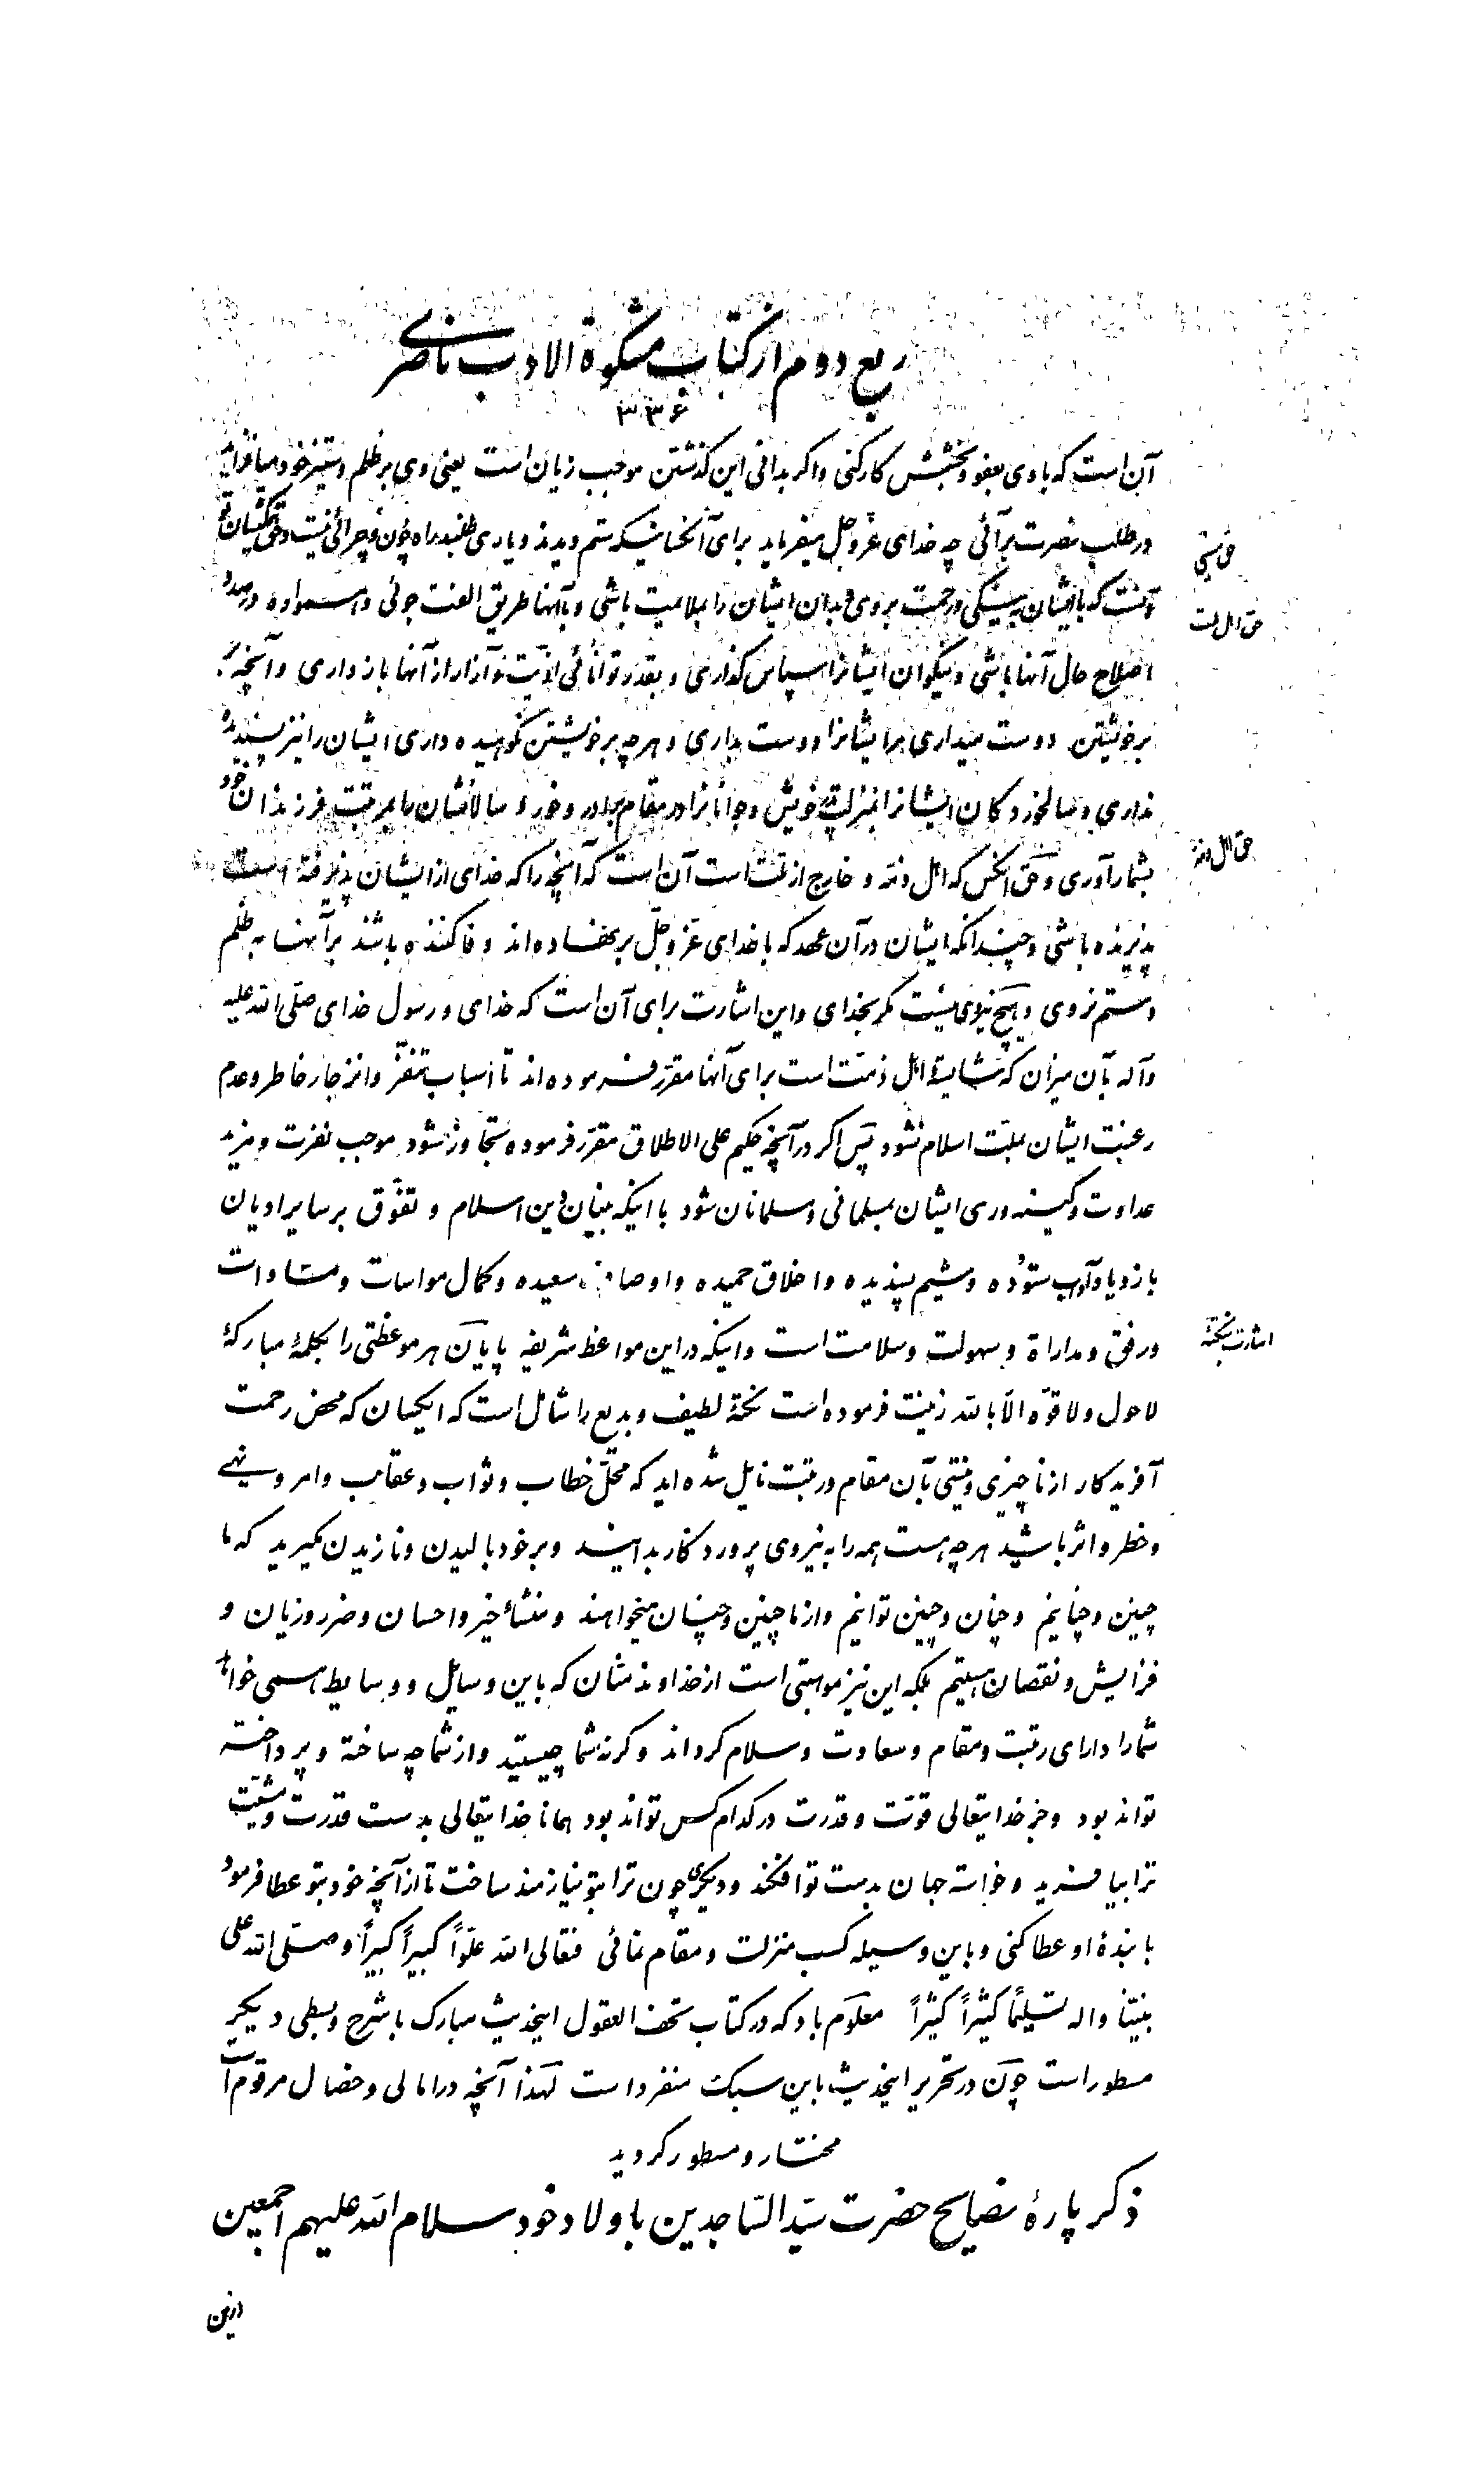 ربع دوم از کتاب مشکوة الادب ناصری
۳۳۶
آن است که با وی بعفو و بخشش کار کنی و اگر بدانی این گذشتن موجب زیان است یعنی وی بر ظلم و ستیز خود میافزاید
در طلب نصرت برآئی چه خدای عزّ وجلّ میفرماید برای آنکسانیکه ستم دیدند و یاری طلبند راه چون و چرائی نیست و حق همکیشان تو
حق همکیشی
آنست که با ایشان به نیکی و رحمت بروی و بدان ایشان را بملایمت باشی و با آنها طریق الفت جوئی و همواره در صدد
حق اهل ملت
اصلاح حال آنها باشی و نیکوان ایشانرا سپاس گذاری و بقدر توانائی اذیّت و آزار از آنها باز داری و آنچه بر
بر خویشتن دوست میداری بر ایشانرا دوست بداری و هر چه بر خویشتن نکوهیده داری ایشان را نیز پسندیده
نداری و سالخوردگان ایشانرا بمنزلت پدر خویش و جوانانرا در مقام برادر و خورد سالانشان را بمرتبت فرزندان خود
بشمار آوری و حق آنکس که اهل ذمّه و خارج از ملّت است آن است که آنچه را که خدای از ایشان پذیرفته است
حق اهل ذمه
پذیرنده باشی و چندانکه ایشان در آن عهد که با خدای عزّ وجلّ بر نهاده‌اند وفا کننده باشند بر آنها به ظلم
و ستم نروی و هیچ نیروی نیست مگر بخدای و این اشارت برای آن است که خدای و رسول خدای صلّی الله علیه
و آله بآن میزان که شایسته اهل ذمّت است برای آنها مقرّر فرموده‌اند تا اسباب تنفّر و انزجار خاطر و عدم
رغبت ایشان بملّت اسلام نشود پس اگر در آنچه حکیم علی الاطلاق مقرّر فرموده تجاوز شود موجب نفرت و مزید
عداوت و کینه وری ایشان بمسلمانی و مسلمانان شود با اینکه بنیان دین اسلام و تفوّق بر سایر ادیان
بازدیاد آداب ستوده و شیم پسندیده و اخلاق حمیده و اوصاف سعیده و کمال مواسات و مساوات
و رفق و مداراة و سهولت و سلامت است و اینکه در این مواعظ شریفه پایان هر موعظتی را بکلمۀ مبارکۀ
اشارت بنکته
لا حول ولا قوّة الّا بالله زینت فرموده است نکتۀ لطیف و بدیع را شامل است که ایکسان که محض رحمت
آفریدگار از ناچیزی و نیستی بآن مقام و رتبت نایل شده‌اید که محلّ خطاب و ثواب و عقاب و امر و نهی
و خطر و اثر باشید هر چه هست همه را به نیروی پروردگار بدانید و بر خود بالیدن و نازیدن مگیرید که ما
چنین و چنانیم و چنان و چنین توانیم و از ما چنین و چنان میخواهند و منشأ خیر و احسان و ضرر و زیان و
فزایش و نقصان هستیم بلکه این نیز موهبتی است از خداوند منّان که باین وسایل و وسایط همی خواهد
شما را دارای رتبت و مقام و سعادت و سلام گرداند و گرنه شما چیستید و از شما چه ساخته و پرداخته
تواند بود و جز خدایتعالی قوّت و قدرت در کدام کس تواند بود همانا خدایتعالی بدست قدرت و مشیّت
ترا بیافرید و خواسته جهان بدست تو افکند و دیگری چون ترا بتو نیازمند ساخت تا از آنچه خود بتو عطا فرمود
با بندۀ او عطا کنی و باین وسیله کسب منزلت و مقام نمائی فتعالی الله علوّاً کبیراً کبیراً و صلّی الله علی
نبیّنا واله تسلیماً کثیراً کثیراً معلوم باد که در کتاب تحف العقول اینحدیث مبارک با شرح و بسطی دیگر
مسطور است چون در تحریر اینحدیث باین سبک منفرد است لهذا آنچه در امالی و خصال مرقوم است
مختار و مسطور گردید
ذکر پارۀ نصایح حضرت سیّد السّاجدین با اولاد خود سلام الله علیهم اجمعین